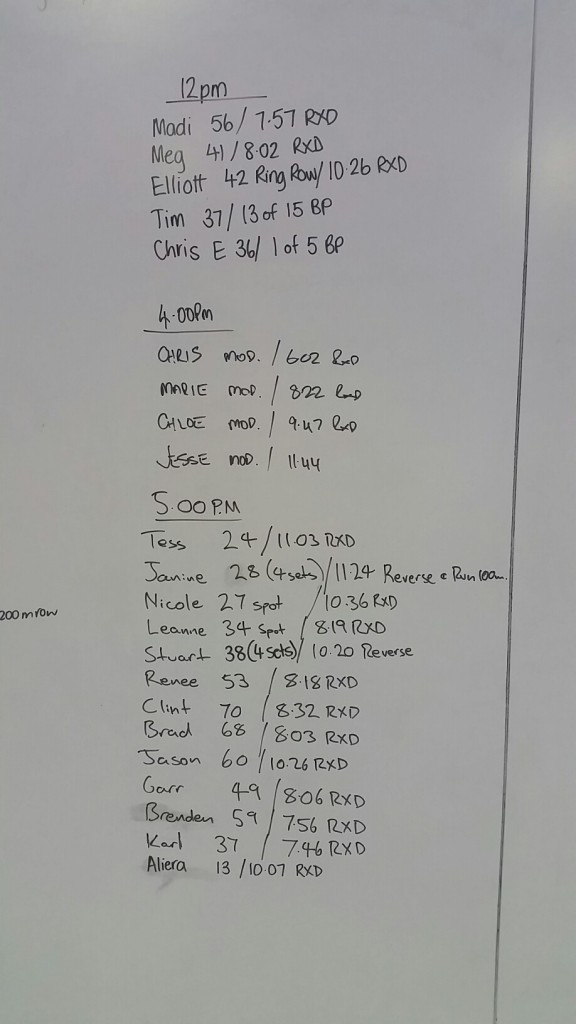 12pm
Madi 56/7.57 RXD
Meg 41/8.02 RXD
Elliott 42 Ring Row/10.26 RXD
Tim 37/13 of 15 BP
Chris E 36/1 of 5 BP
4.00Pm
CHRIS MOD. / 602 RxD
MARIE MOD. / 822 RxD
CHLOE MOD. / 9.47 RxD
JESSE MOD. / 11.44
5.00 P.M
Tess 24/11.03 RXD
Janine 28 (4sets)/11.24 Reverse & Run 100m.
200m row
Nicole 27 spot /10.36 RXD
Leanne 34 spot / 8.19 RXD
Stuart 38(4 sets)/ 10.20 Reverse
Renee 53 / 8.18 RXD
Clint 70 / 8.32 RXD
Brad 68 / 8.03 RXD
Jason 60 / 10.26 RXD
Garr 49 / 8.06 RXD
Brenden 59 / 7.56 RXD
Karl 37 / 7.46 RXD
Aliera 13 /10.07 RXD